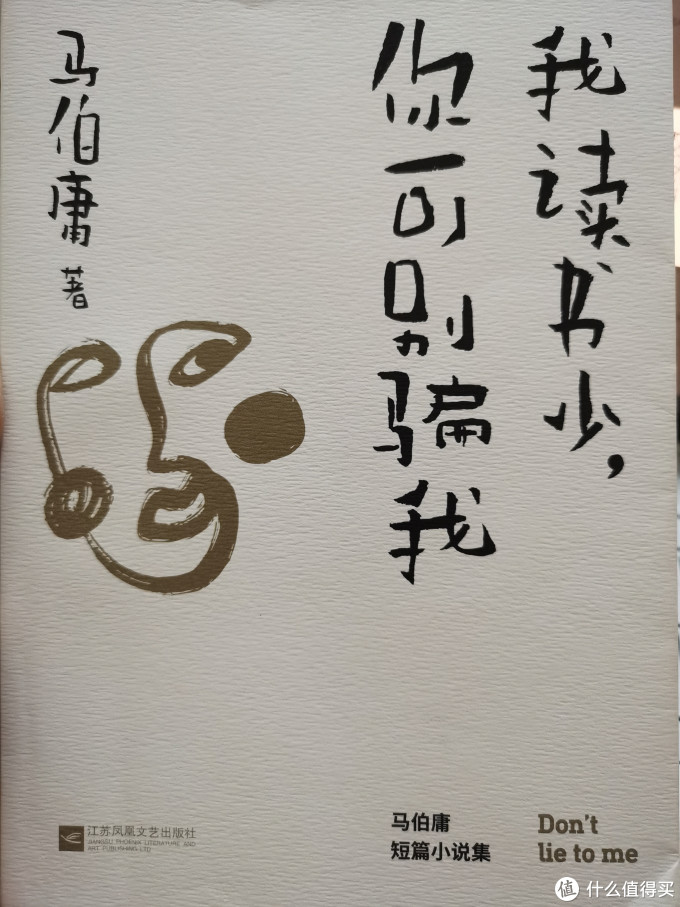 我读书少，
你可别骗我
马伯庸 著
江苏凤凰文艺出版社
JIANGSU PHOENIX LITERATURE AND
ART PUBLISHING LTD
马伯庸
短篇小说集
Don't
lie to me
值 什么值得买